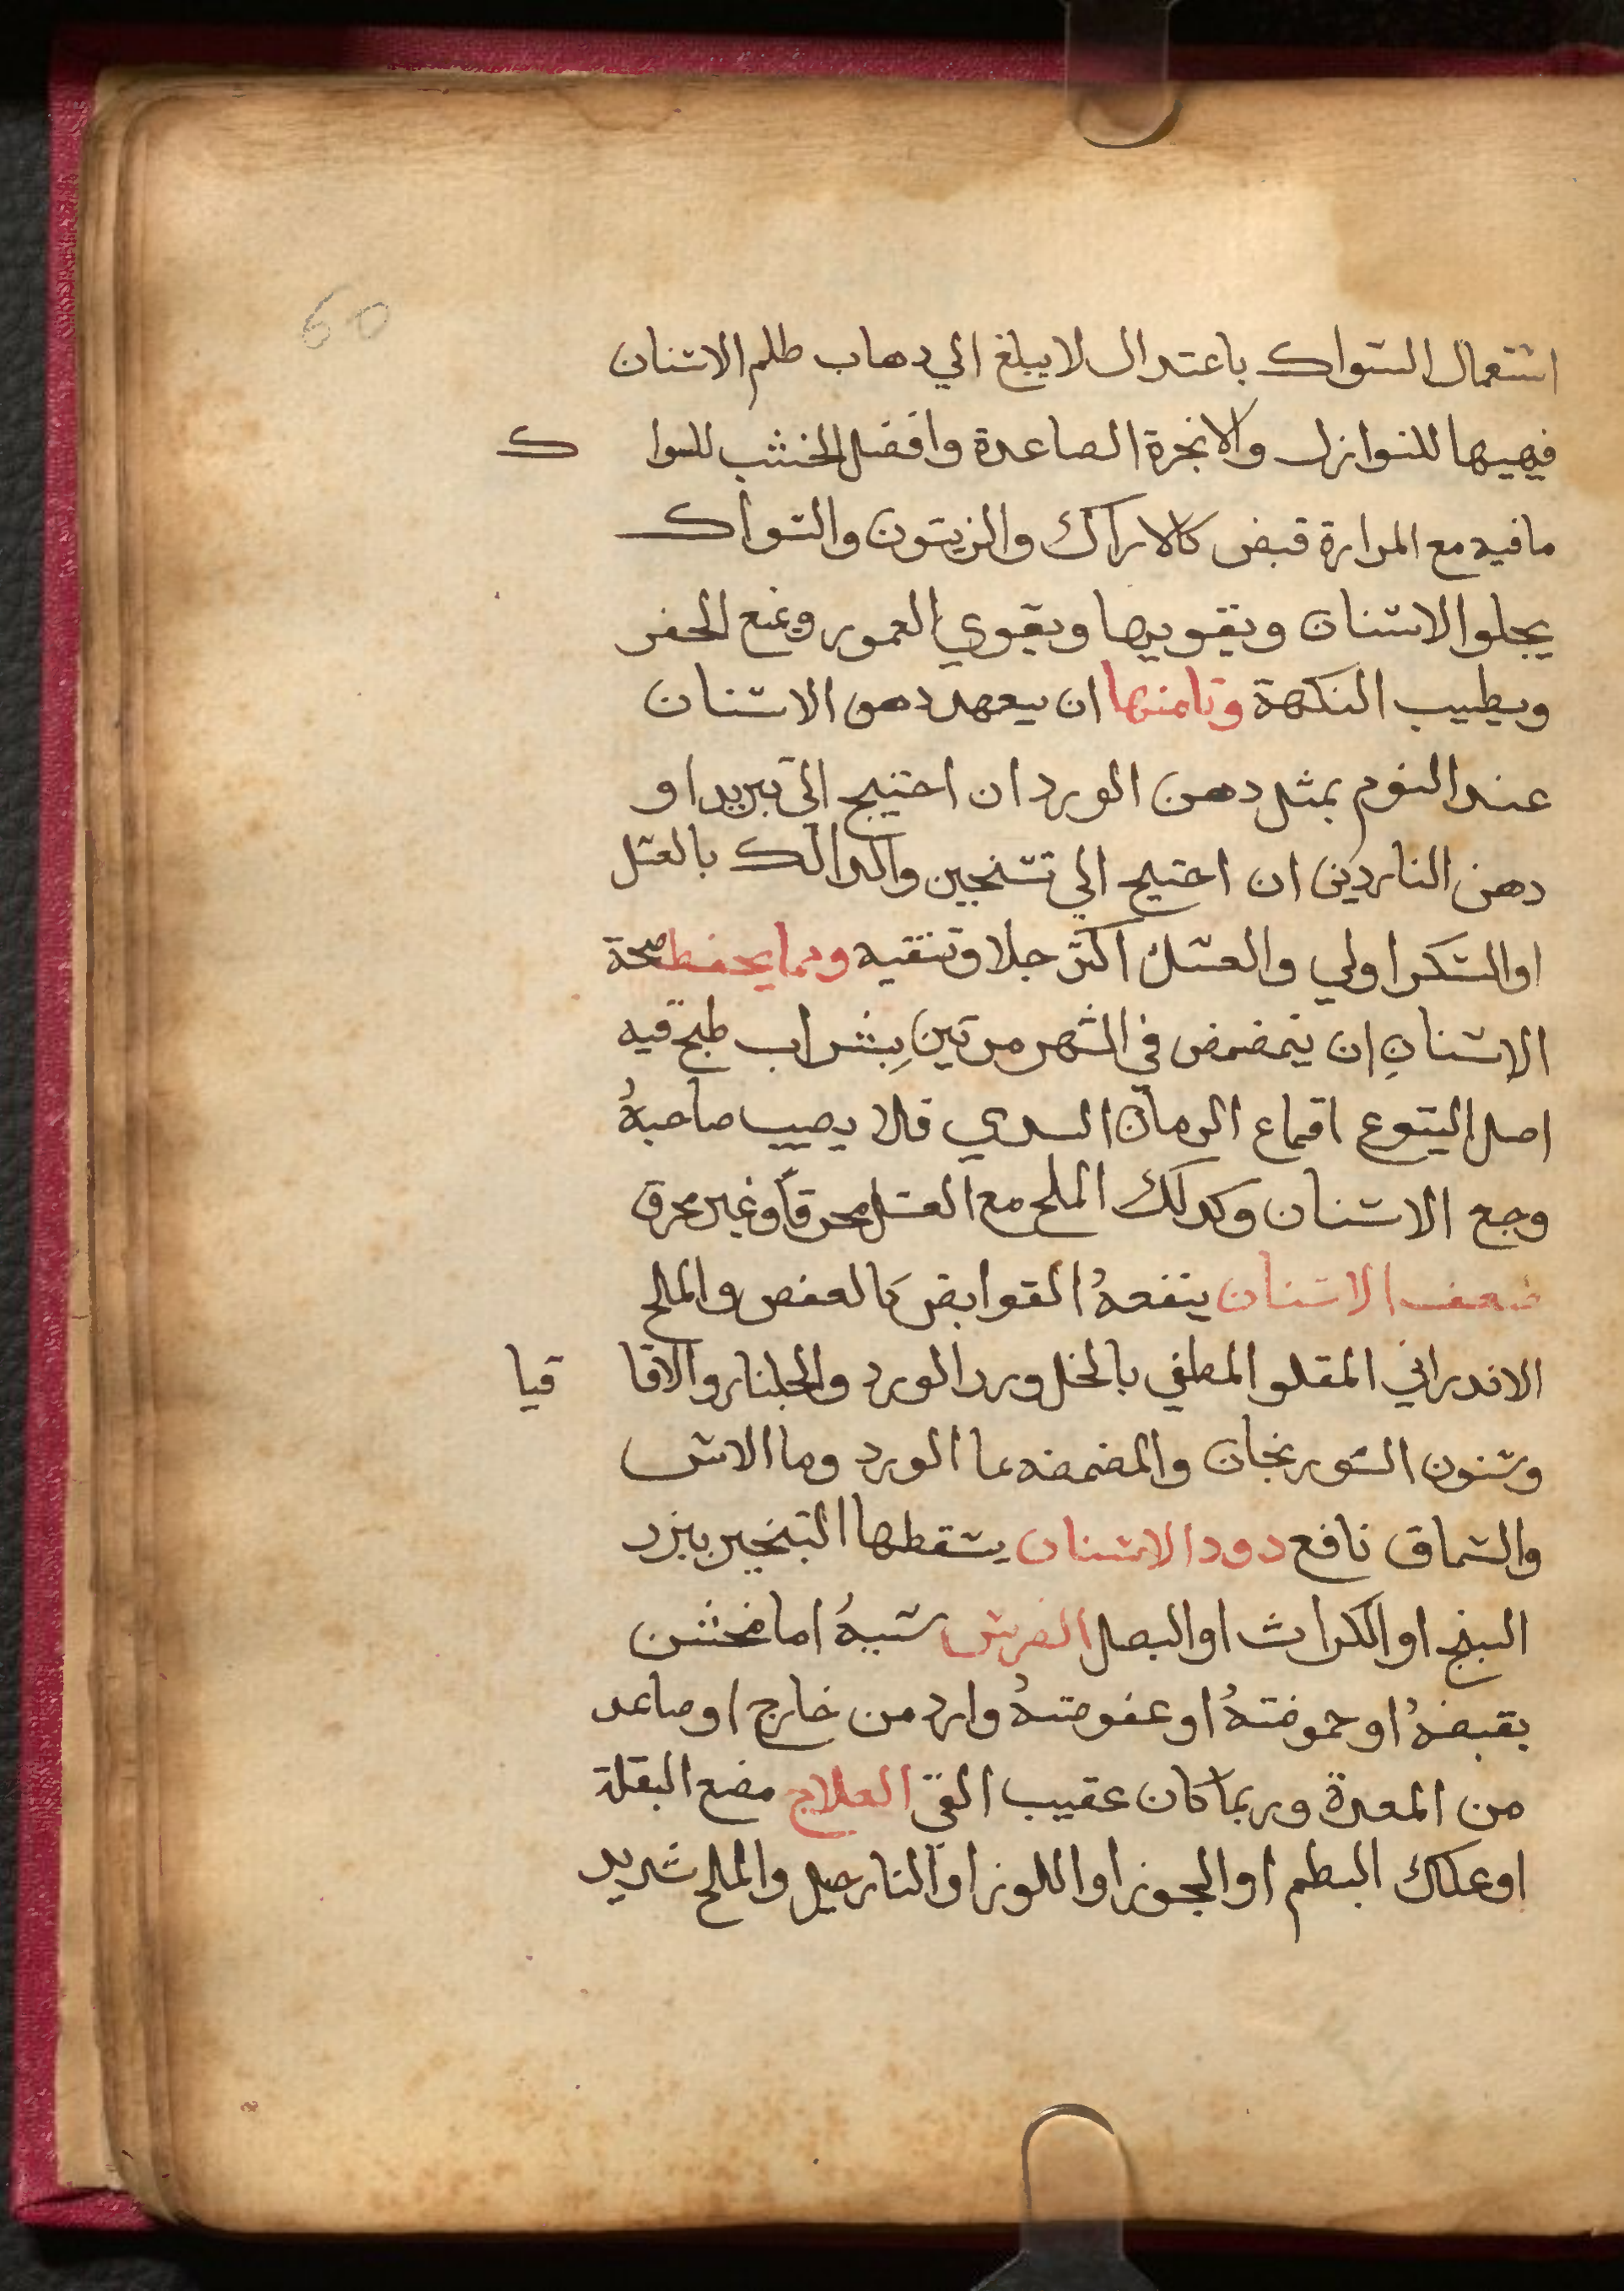 60
استعمال السواك باعتدال لا يبلغ الي دهاب طلم الاسنان
فيهيها للنوازل والابخرة الصاعدة وافضل الخشب للسواك
ما فيه مع المرارة قبض كالاراك والزيتون والسواك
يجلوا الاسنان ويقويها ويقوي العمور ويمنع الحفر
ويطيب النكهة وتامنها ان يتعهد دهن الاسنان
عند النوم بمثل دهن الورد ان احتيج الي تبريد او
دهن الناردين ان احتيج الي تسخين والدالك بالعسل
او السكر اولي والعسل اكثر جلا وتنقيه ومما يحفط صحة
الاسنان ان يتمضمض في الشهر مرتين بشراب طبخ فيه
اصل اليتوع اقماع الرمان السدي فلا يصيب صاحبهُ
وجع الاسنان وكدلك الملح مع العسل محرقاً وغير محرق
ضعف الاسنان ينفعهُ القوابض كالعفص والملح
الاندراني المقلو المطفي بالخل وورد الورد والجلنار والاقاقيا
وسنون السورنجان والمضمضه بما الورد وما الاس
والسماق نافع دود الاسنان يسقطها التبخير ببزر
البنج او الكراث او البصل الضرس سببهُ اما مخشن
بقبضهُ او حموضتهُ او عفوصتهُ وارد من خارج او صاعد
من المعدة وربما كان عقيب القي العلاج مضع البقلة
او علك البطم او الجوز او اللوز او النارجيل والملح شديد